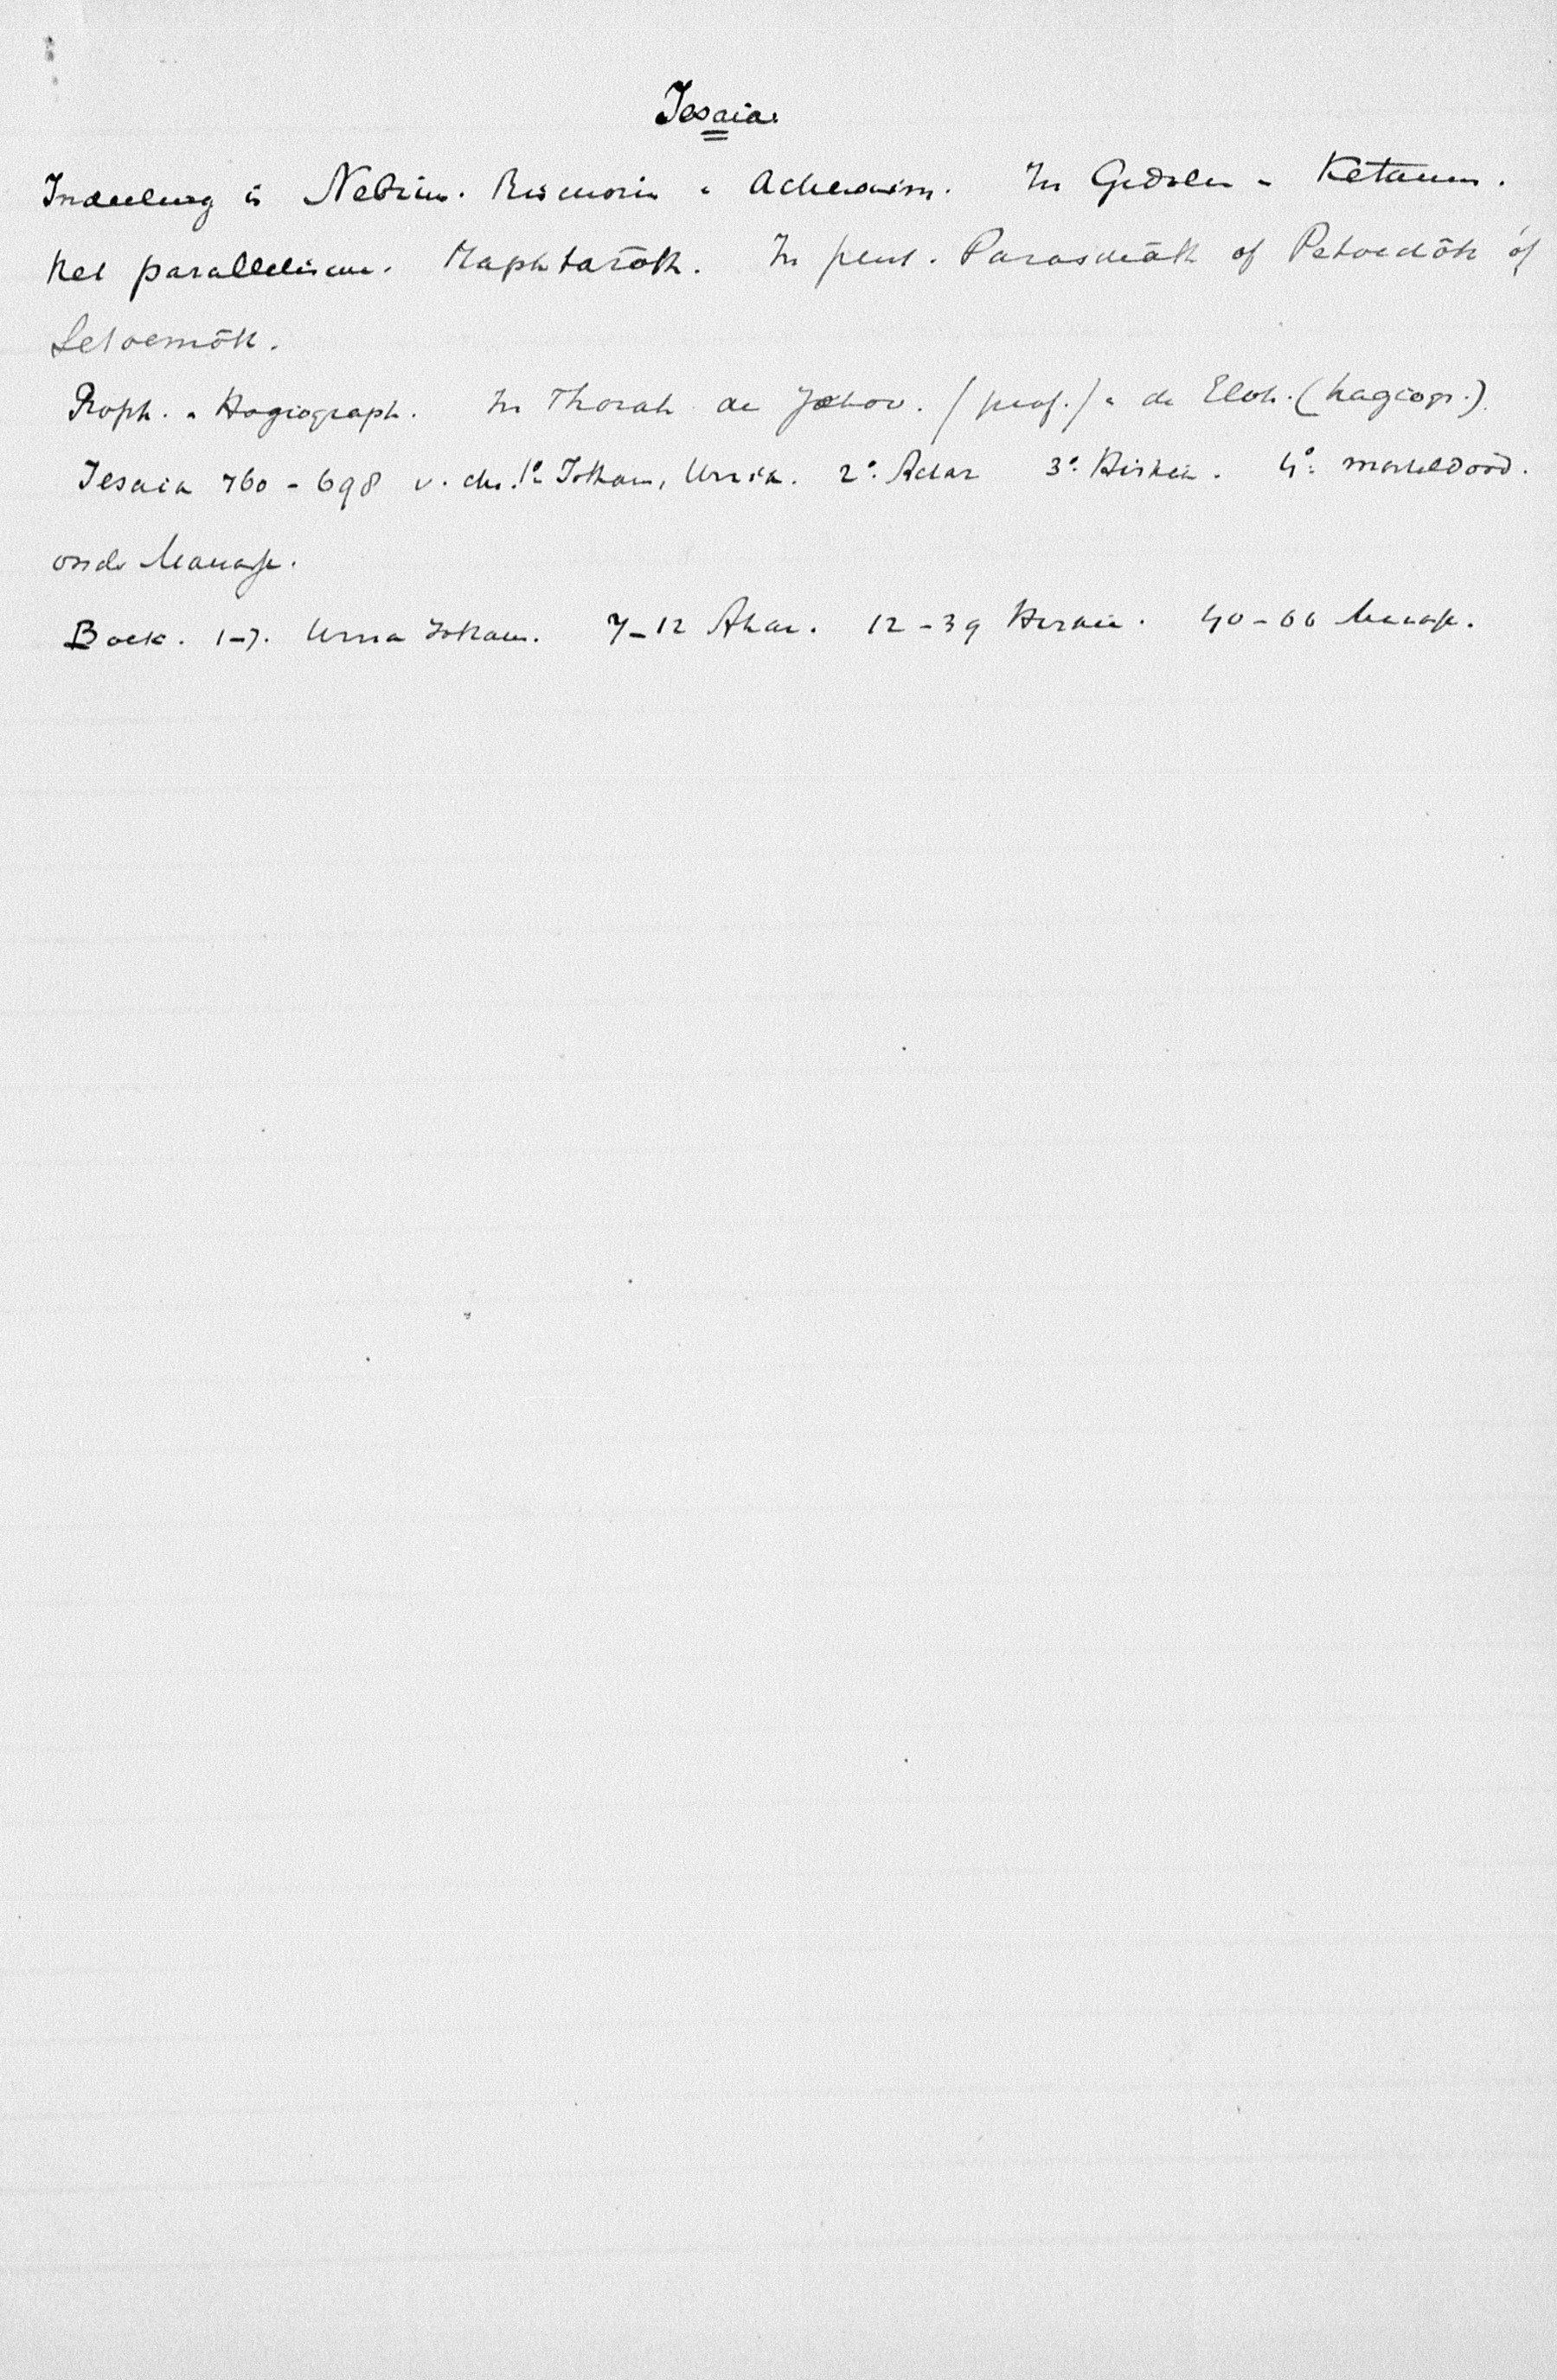 Jesaia.
Indeeling is Nebiim. Rischonim " Acheronim. In Gedolim " Ketannim.
Het parallelisme. Haphtarōth. In pent. Paraschāth of Petoechōth óf
Setoemōth.
Proph. " Hagiograph. In Thorah de Jehov. (prof.) " de Eloh. (hagiogr.).
Jesaia 760 - 698 v. Chr. 1º Jotham, Uzzia. 2º Achaz 3º Hiskia. 4º marteldood.
onder Manasse.
Boek. 1-7. Uzzia Jotham. 7-12 Ahaz. 12-39 Hizkia. 40-66 Manasse.